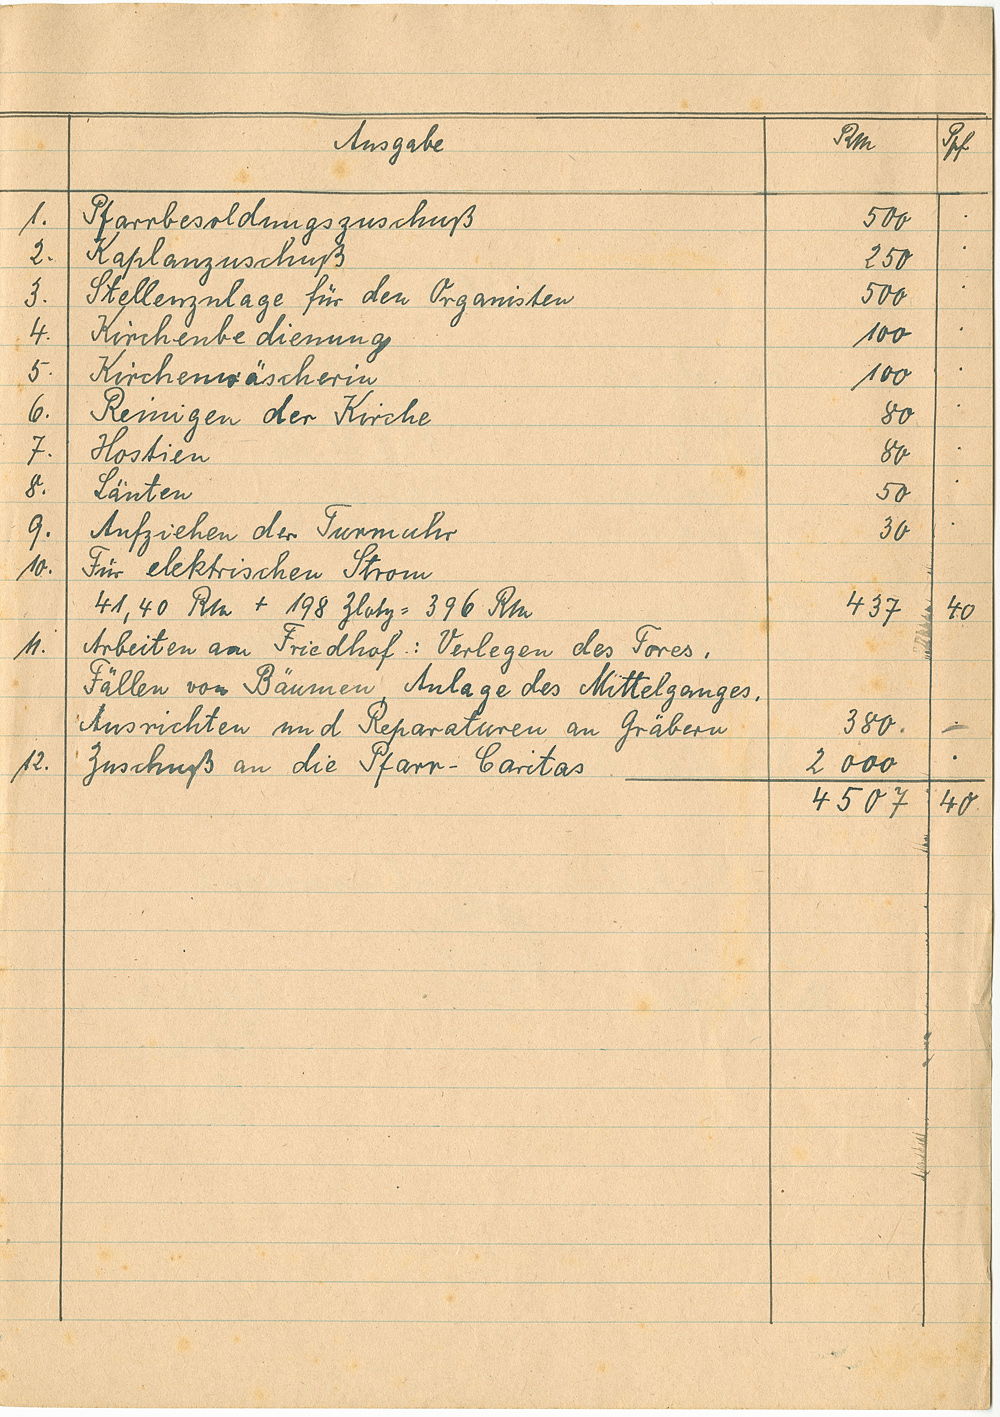 Ausgabe Rm Pf
1. Pfarrbesoldungszuschuß 500 .
2. Kaplanzuschuß 250 .
3. Stellenzulage für den Organisten 500 .
4. Kirchenbedienung 100 .
5. Kirchenwäscherin 100 .
6. Reinigen der Kirche 80 .
7. Hostien 80 .
8. Läuten 50 .
9. Aufziehen der Turmuhr 30 .
10. Für elektrischen Strom
41,40 Rm + 198 Zloty = 396 Rm 437 40
11. Arbeiten am Friedhof: Verlegen des Tores,
Fällen von Bäumen, Anlage des Mittelganges,
Ausrichten und Reparaturen an Gräbern 380. -
12. Zuschuß an die Pfarr-Caritas 2 000 .
4507 40